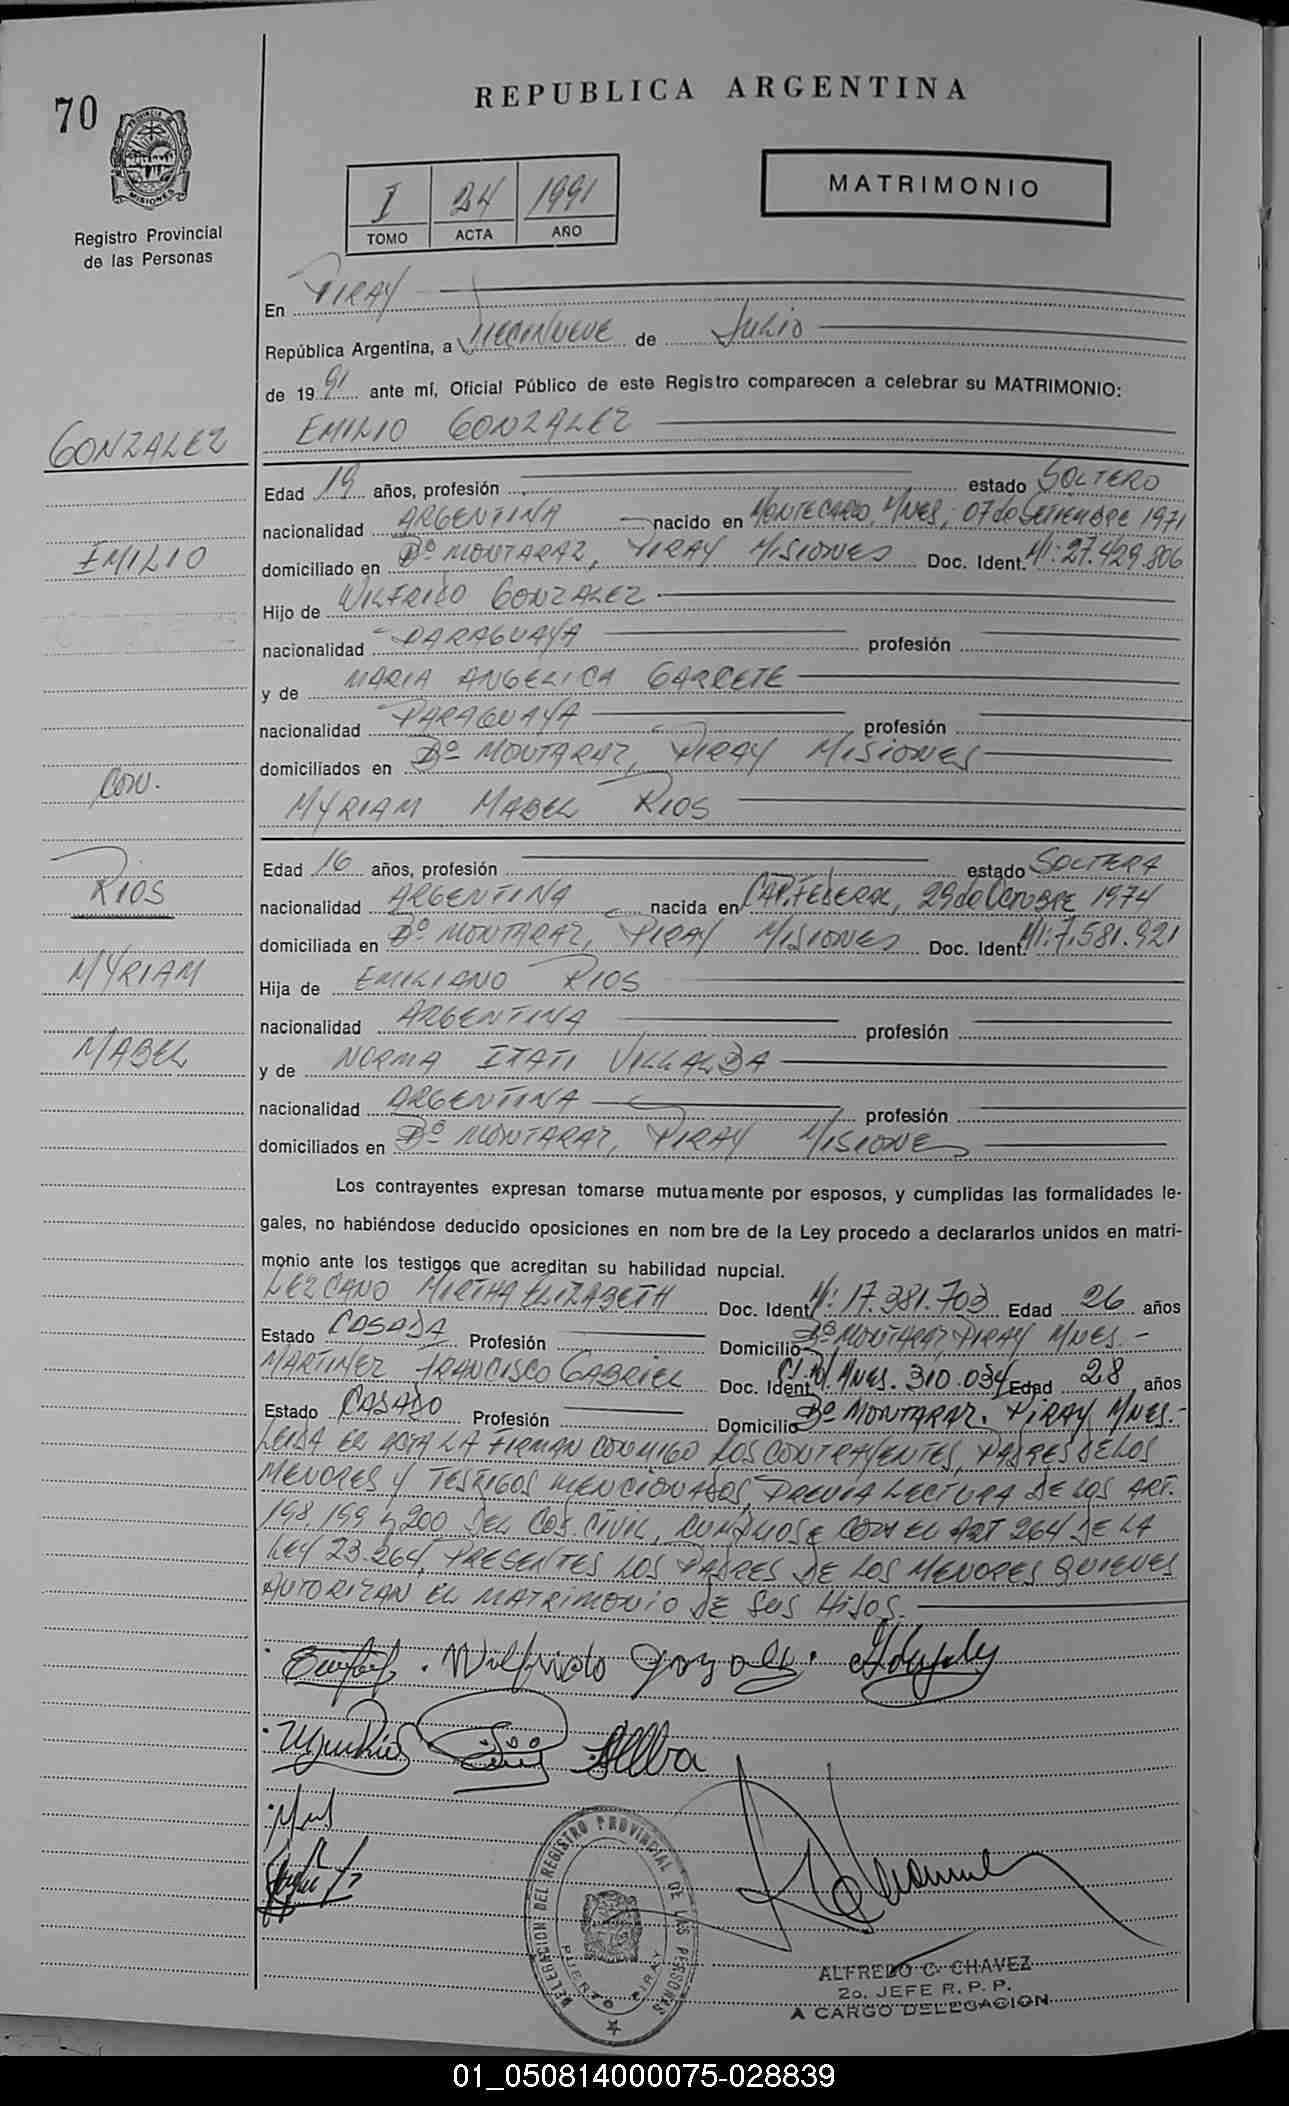 70
REPUBLICA ARGENTINA
PROVINCIA DE MISIONES
Registro Provincial
de las Personas
I 24 1991
TOMO ACTA AÑO
MATRIMONIO
En PIRAY
República Argentina, a DIECINUEVE de JULIO
de 1991 ante mí, Oficial Público de este Registro comparecen a celebrar su MATRIMONIO:
GONZALEZ
EMILIO GONZALEZ
Edad 19 años, profesión estado SOLTERO
nacionalidad ARGENTINA nacido en MONTECARLO, MNES, 07 de SETIEMBRE 1971
EMILIO
domiciliado en Bº MONTARAZ, PIRAY MISIONES Doc. Ident. MI: 27.429.806
Hijo de WILFRIDO GONZALEZ
nacionalidad PARAGUAYA profesión
y de MARIA ANGELICA GARCETE
nacionalidad PARAGUAYA profesión
domiciliados en Bº MONTARAZ, PIRAY MISIONES
CON.
MYRIAM MABEL RIOS
RIOS
Edad 16 años, profesión estado SOLTERA
nacionalidad ARGENTINA nacida en CAP. FEDERAL, 29 de OCTUBRE 1974
domiciliada en Bº MONTARAZ, PIRAY MISIONES Doc. Ident. MI: 7.581.921
MYRIAM
Hija de EMILIANO RIOS
nacionalidad ARGENTINA profesión
MABEL
y de NORMA ITATI VILLALBA
nacionalidad ARGENTINA profesión
domiciliados en Bº MONTARAZ, PIRAY MISIONES
Los contrayentes expresan tomarse mutuamente por esposos, y cumplidas las formalidades le-
gales, no habiéndose deducido oposiciones en nom bre de la Ley procedo a declararlos unidos en matri-
monio ante los testigos que acreditan su habilidad nupcial.
LEZCANO MIRTHA ELIZABETH Doc. Ident. MI: 17.381.703 Edad 26 años
Estado CASADA Profesión Domicilio Bº MONTARAZ, PIRAY MNES.-
MARTINEZ FRANCISCO GABRIEL Doc. Ident. MNES. 310.034 Edad 28 años
Estado CASADO Profesión Domicilio Bº MONTARAZ. PIRAY MNES.-
LEIDA EL ACTA LA FIRMAN CONMIGO LOS CONTRAYENTES, PADRES DE LOS
MENORES Y TESTIGOS MENCIONADOS, PREVIA LECTURA DE LOS ART.
198, 199 y 200 DEL COD. CIVIL, CUMPLIOSE CON EL ART 264 DE LA
LEY 23.264, PRESENTES LOS PADRES DE LOS MENORES QUIENES
AUTORIZAN EL MATRIMONIO DE SUS HIJOS.
Wilfrido Gonzalez
DELEGACION DEL REGISTRO PROVINCIAL DE LAS PERSONAS
PUERTO PIRAY
ALFREDO C. CHAVEZ
2o. JEFE R. P. P.
A CARGO DELEGACION
01_050814000075-028839